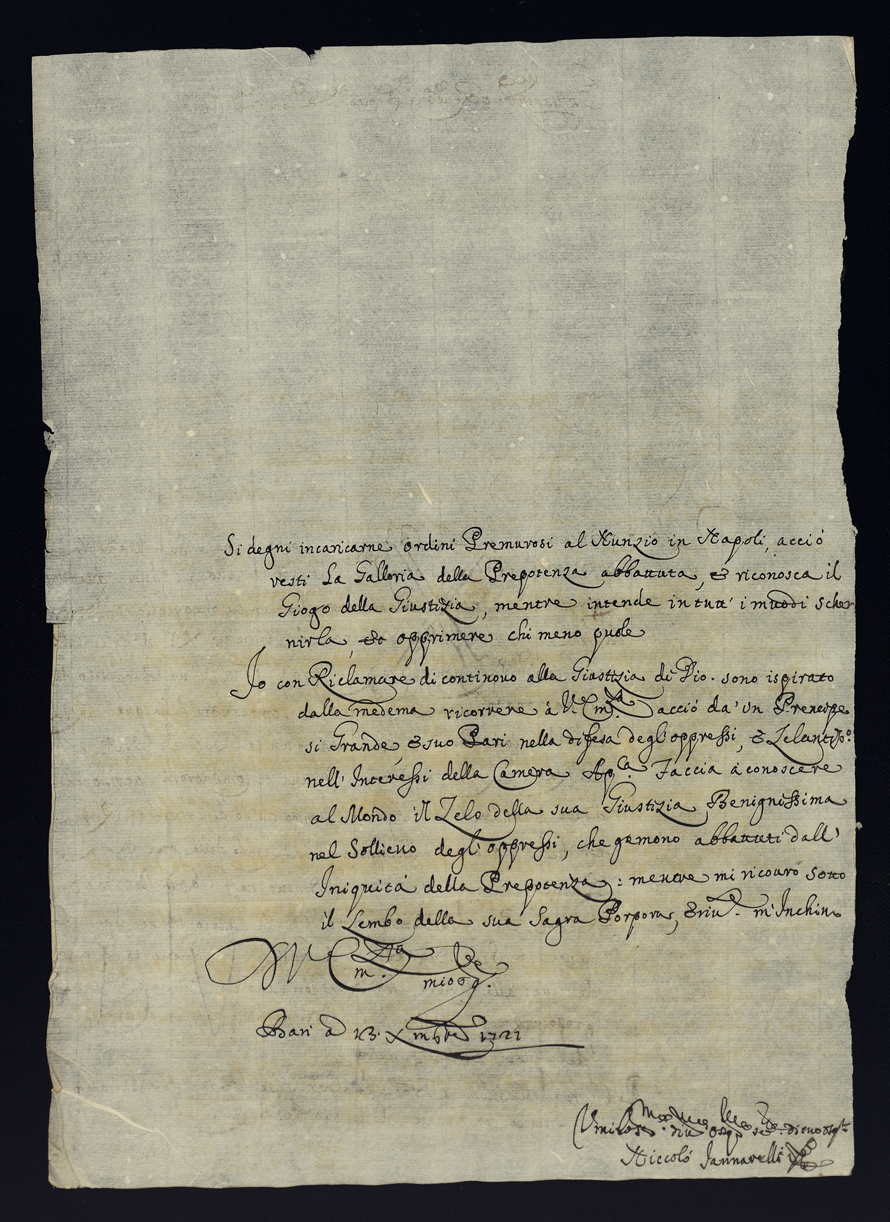 Si degni incaricarne ordini Premurosi al Nunzio in Napoli, acciò
resti La Galloria della Prepotenza abbattuta, & riconosca il
Giogo della Giustizia, mentre intende in tutt' i muodi scher
nirla, & opprimere chi meno puole
Io con Riclamare di continovo alla Giustizia di Dio. sono ispirato
dalla medema ricorrere à V. Em.za acciò da' un Prencepe
si Grande, & suo Pari nella difesa degl'oppressi, & Zelantiss.o
nell' Interessi della Camera Ap.la Faccia à conoscere
al Mondo il Zelo della sua Giustizia Benignissima
nel Sollievo degl'oppressi, che gemono abbattuti dall'
Iniquità della Prepotenza: mentre mi ricouro sotto
il Lembo della sua Sagra Porpora, & m'Inchino
Bari a 13. Xmbre 1721
Niccolò Iannarelli